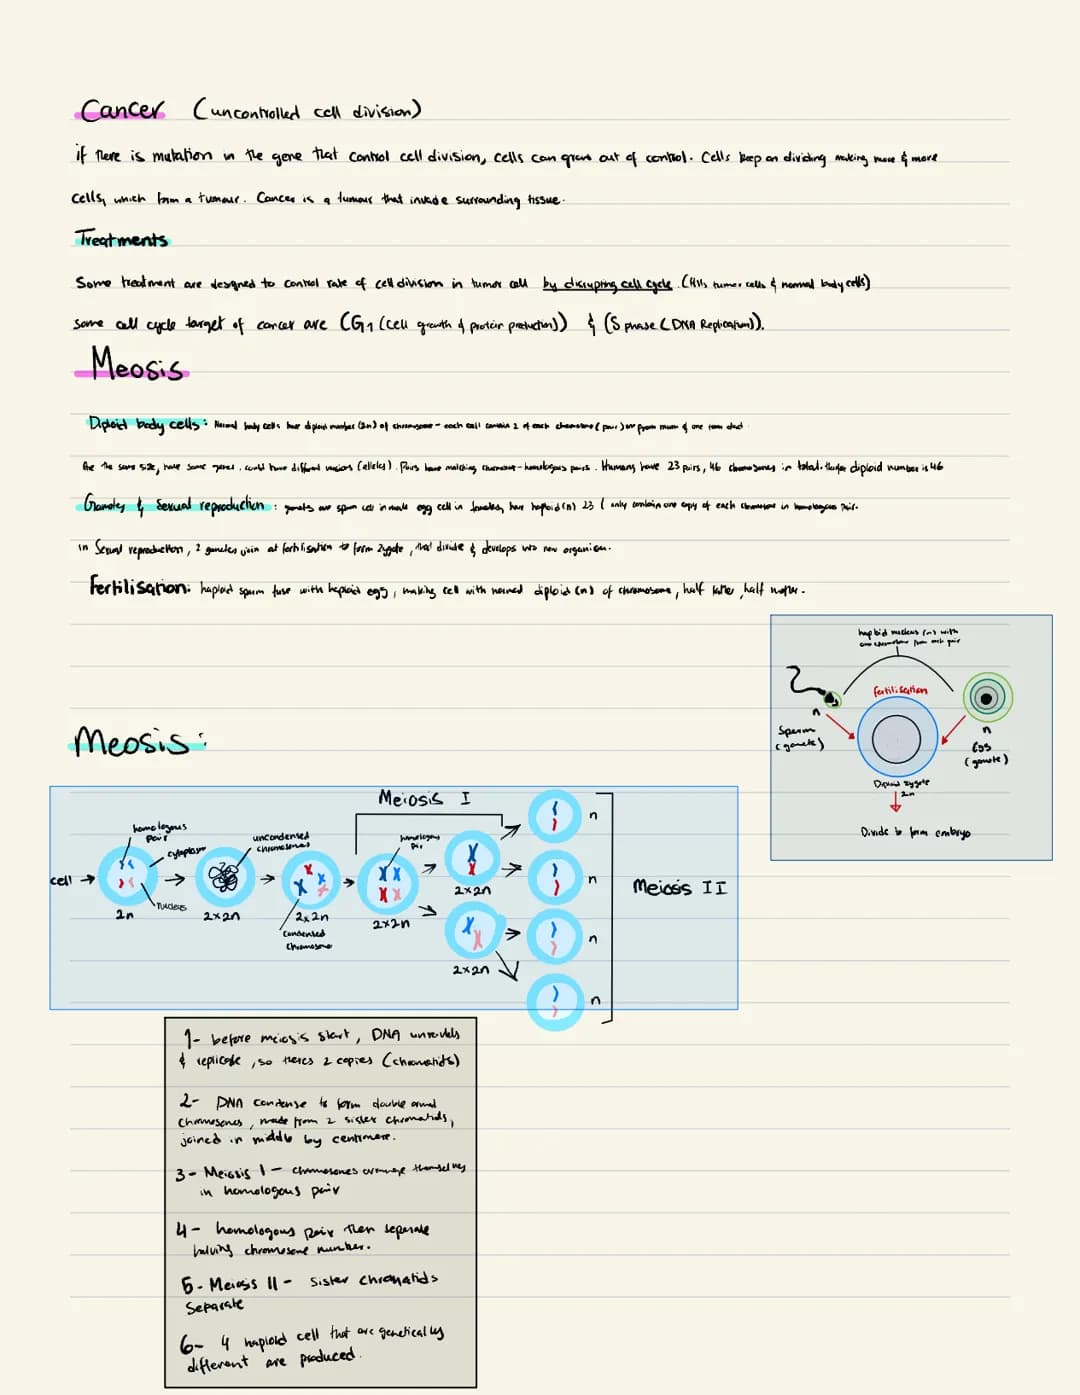 Cancer (uncontrolled cell division)
if there is mutation in the gene that control cell division, cells can grow out of control. Cells keep on dividing making more & more
cells, which form a tumour. Cancer is a tumour that invade surrounding tissue.
Treatments
Some treatment are designed to control rate of cell division in tumor cell by disrupting cell cycle. (Kills tumor cells & normal body cells)
Some cell cycle target of cancer are (G1 (cell growth & protein production)) & (S phase (DNA Replication)).
Meosis
Diploid body cells: Normal body cells have diploid number (2n) of chromosome - each cell contain 2 of each chromosome (pair) one from mum & one from dad
Are the same size, have same genes, could have different versions (alleles). Pairs have matching chromosome - homologous pairs. Humans have 23 pairs, 46 chromosomes in total. diploid number is 46
Gametes & Sexual reproduction: gametes are sperm cell in male egg cell in females, have haploid (n) 23 ( only contain one copy of each chromosome in homologous pair.
in Sexual reproduction, 2 gametes join at fertilisation to form zygote, that divide & develops into new organism.
Fertilisation: haploid sperm fuse with haploid egg, making cell with normal diploid (n) of chromosome, half father, half mother.
haploid nucleus (n) with
one chromosome from each pair
fertilisation
n
Sperm
(gamete)
n
Egg
(gamete)
Diploid zygote
2n
Divide to form embryo
Meosis:
Meiosis I
homologous
pair
cytoplasm
uncondensed
chromosomes
homologous
pair
cell
nucleus
2n
2x2n
2x2n
2x2n
2x2n
2x2n
condensed
chromosome
n
n
n
n
Meiosis II
1- before meiosis start, DNA unravels
& replicate, so theres 2 copies (chromatids)
2- DNA condense to form double armed
chromosomes, made from 2 sister chromatids,
joined in middle by centromere.
3- Meiosis I - chromosomes arrange themselves
in homologous pair
4- homologous pair then seperate
halving chromosome number.
5- Meiosis II - Sister chromatids
Separate
6- 4 haploid cell that are genetically
different are produced.